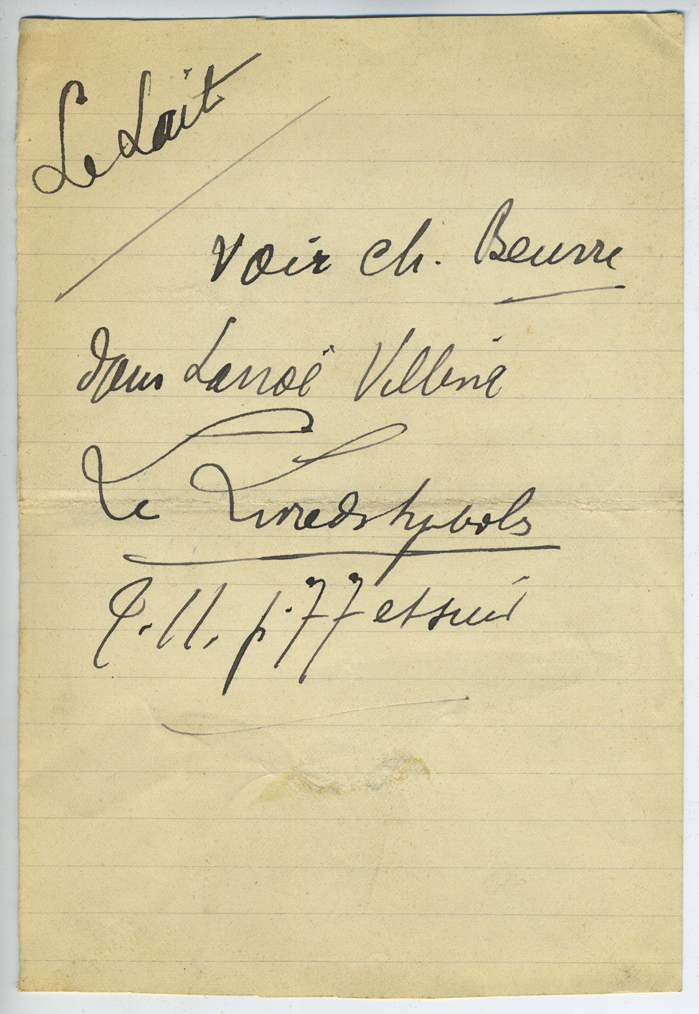 Le Lait
voir ch. Beurre
dans Lanoë Villène
Le Livre ds symbols
t. II. p. 77 et suiv